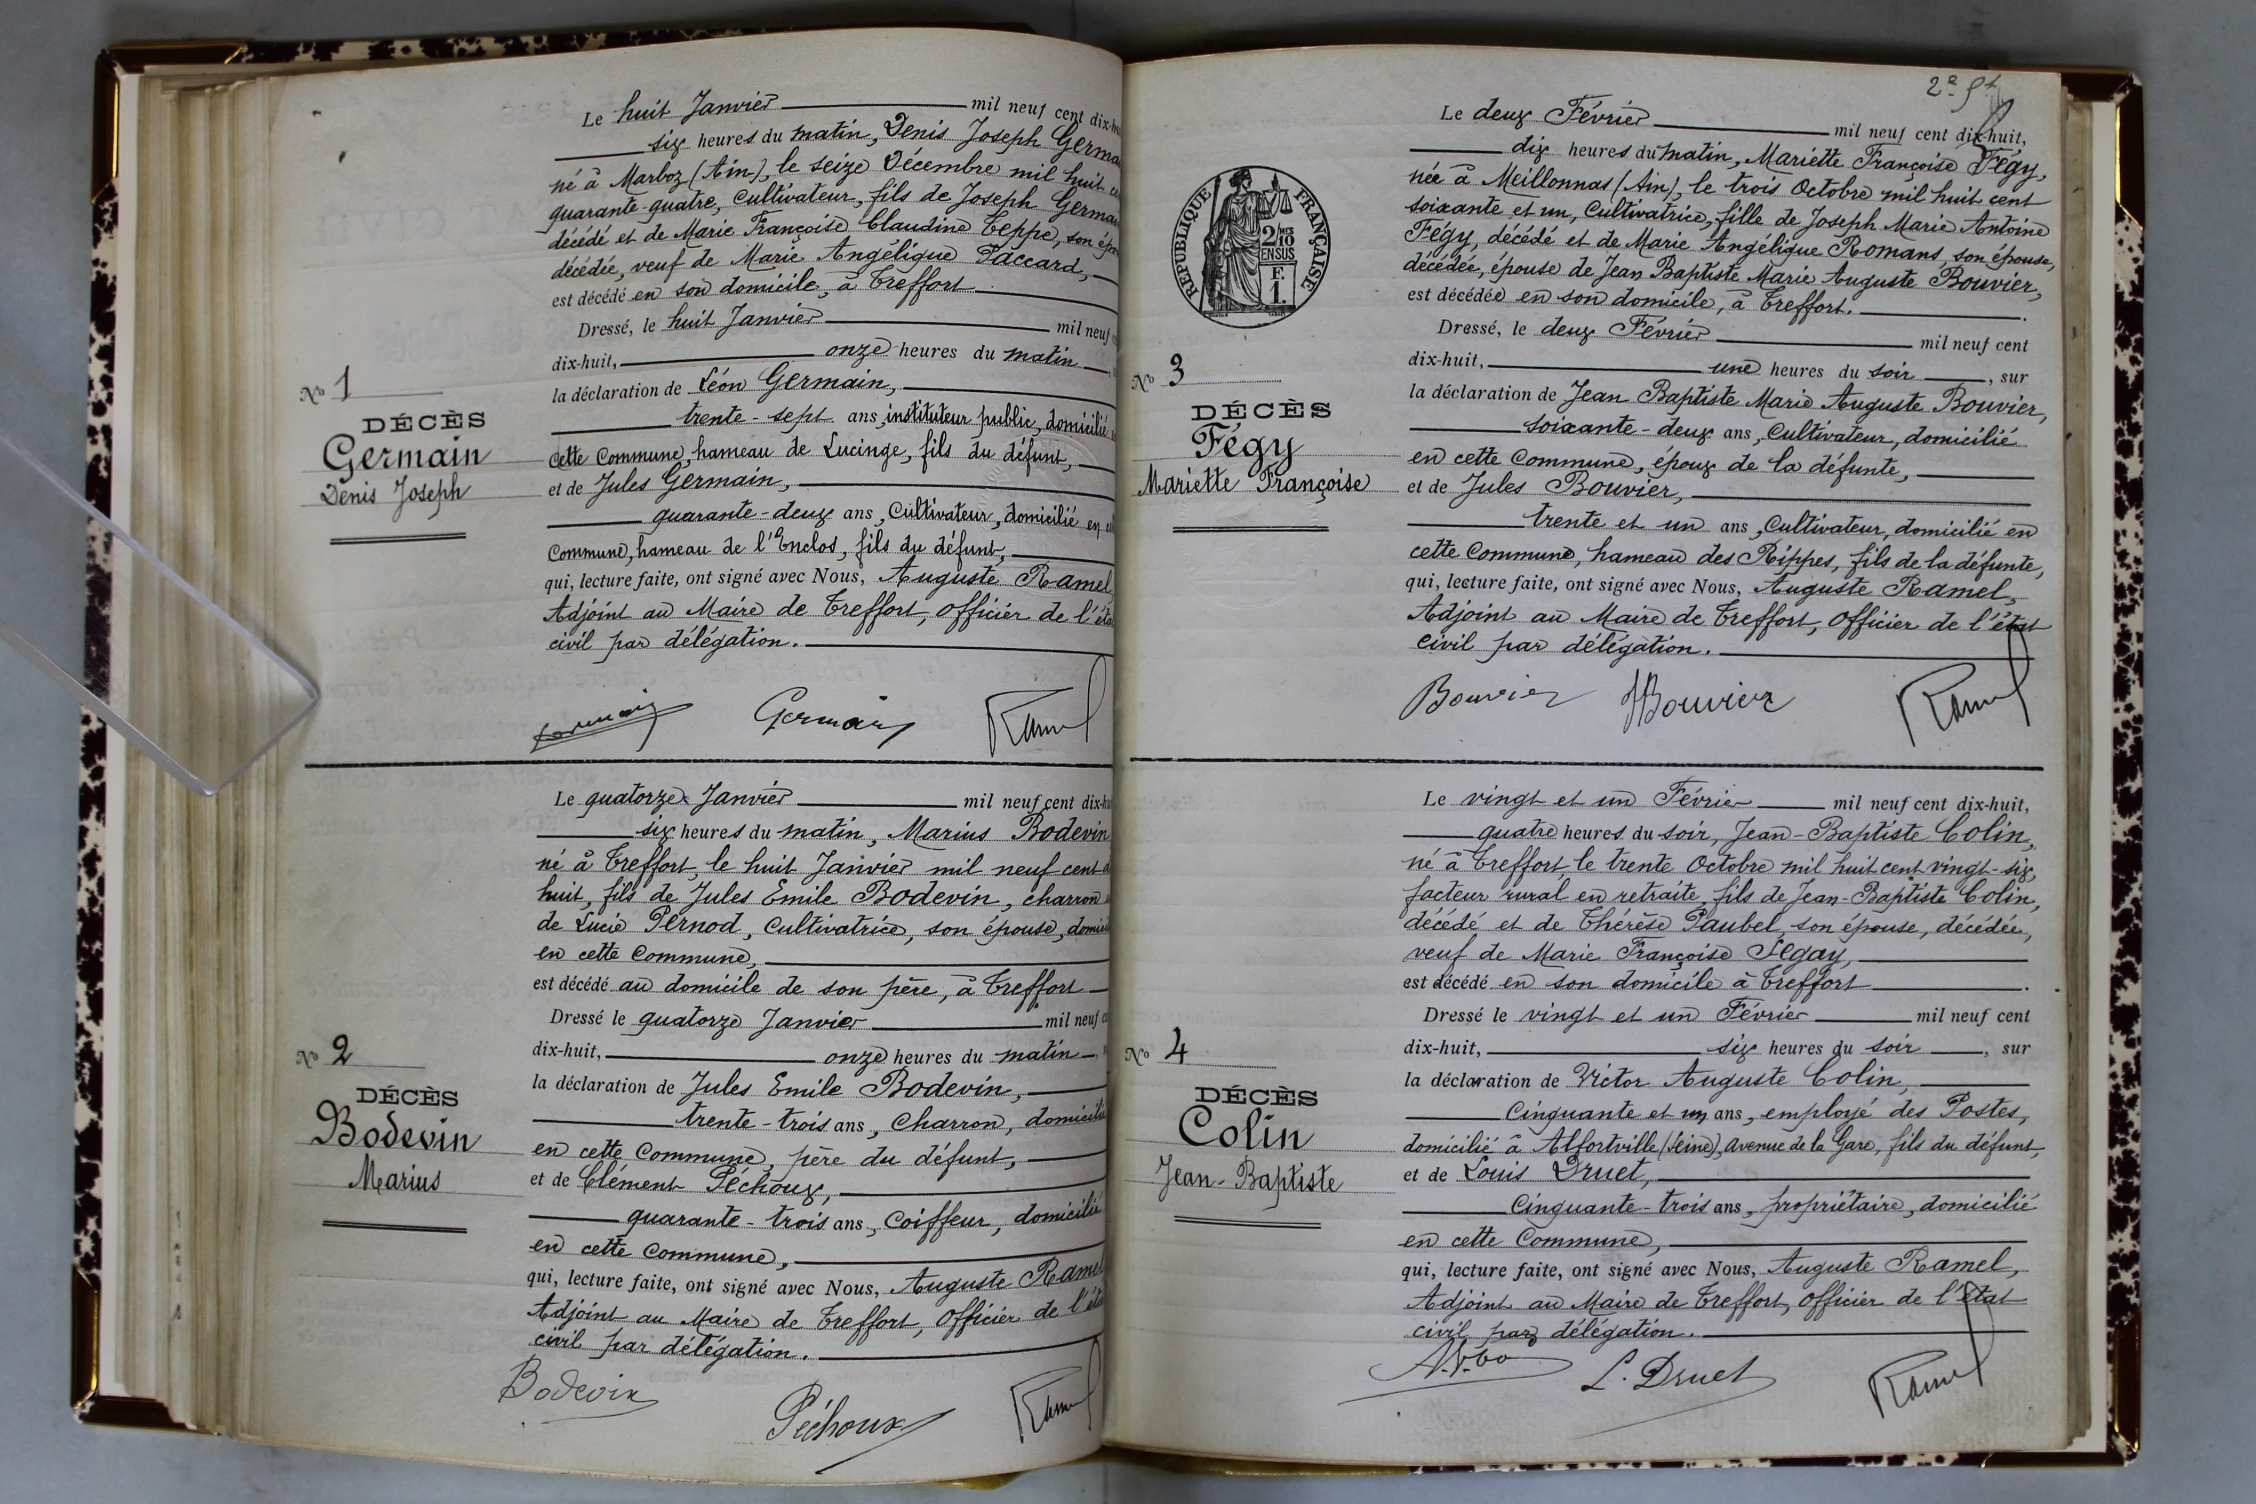 Le huit Janvier mil neuf cent dix-hu
six heures du matin, Denis Joseph Germa
né à Marboz (Ain), le seize Décembre mil huit ce
quarante-quatre, Cultivateur, fils de Joseph Germa
décédé et de Marie Françoise Claudine Teppe, son épou
décédée, veuf de Marie Angélique Paccard,
est décédé en son domicile, à Treffort
Dressé, le huit Janvier mil neuf
dix-huit, onze heures du matin
la déclaration de Léon Germain,
trente-sept ans, instituteur public, domicilié
cette Commune, hameau de Lucinge, fils du défunt,
et de Jules Germain,
quarante-deux ans, Cultivateur, domicilié en
Commune, hameau de l'Enclos, fils du défunt,
qui, lecture faite, ont signé avec Nous, Auguste Ramel
Adjoint au Maire de Treffort, Officier de l'éta
civil par délégation.
Nº 1
DÉCÈS
Germain
Denis Joseph
Germain Germain Ramel
Le quatorze Janvier mil neuf cent dix-hu
six heures du matin, Marius Bodevin
né à Treffort, le huit Janvier mil neuf cent d
huit, fils de Jules Emile Bodevin, charron
de Lucie Pernod, Cultivatrice, son épouse, domici
en cette Commune,
est décédé au domicile de son père, à Treffort
Dressé le quatorze Janvier mil neuf
dix-huit, onze heures du matin
la déclaration de Jules Emile Bodevin,
trente-trois ans, Charron, domicilié
en cette Commune, père du défunt,
et de Clément Péchoux,
quarante-trois ans, Coiffeur, domicilié
en cette Commune,
qui, lecture faite, ont signé avec Nous, Auguste Ramel
Adjoint au Maire de Treffort, Officier de l'éta
civil par délégation.
Nº 2
DÉCÈS
Bodevin
Marius
Bodevin Péchoux Ramel
2e
Le deux Février mil neuf cent dix-huit,
dix heures du matin, Mariette Françoise Fégy,
née à Meillonnas (Ain), le trois Octobre mil huit cent
soixante et un, Cultivatrice, fille de Joseph Marie Antoine
Fégy, décédé et de Marie Angélique Romans son épouse,
décédée, épouse de Jean Baptiste Marie Auguste Bouvier,
est décédée en son domicile, à Treffort.
Dressé, le deux Février mil neuf cent
dix-huit, une heures du soir, sur
la déclaration de Jean Baptiste Marie Auguste Bouvier,
soixante-deux ans, Cultivateur, domicilié
en cette Commune, époux de la défunte,
et de Jules Bouvier,
trente et un ans, Cultivateur, domicilié en
cette Commune, hameau des Rippes, fils de la défunte,
qui, lecture faite, ont signé avec Nous, Auguste Ramel,
Adjoint au Maire de Treffort, Officier de l'état
civil par délégation.
RÉPUBLIQUE FRANÇAISE
2/10MES
EN SUS
F.
1.
Nº 3
DÉCÈS
Fégy
Mariette Françoise
Bouvier JBouvier Ramel
Le vingt et un Février mil neuf cent dix-huit,
quatre heures du soir, Jean-Baptiste Colin,
né à Treffort, le trente Octobre mil huit cent vingt-six,
facteur rural en retraite, fils de Jean-Baptiste Colin,
décédé et de Thérèse Paubel, son épouse, décédée,
veuf de Marie Françoise Segay,
est décédé en son domicile à Treffort.
Dressé le vingt et un Février mil neuf cent
dix-huit, six heures du soir, sur
la déclaration de Victor Auguste Colin,
Cinquante et un ans, employé des Postes,
domicilié à Alfortville (Seine), avenue de la Gare, fils du défunt,
et de Louis Druet,
Cinquante-trois ans, propriétaire, domicilié
en cette Commune,
qui, lecture faite, ont signé avec Nous, Auguste Ramel,
Adjoint au Maire de Treffort, Officier de l'état
civil par délégation.
Nº 4
DÉCÈS
Colin
Jean-Baptiste
L. Druet Ramel